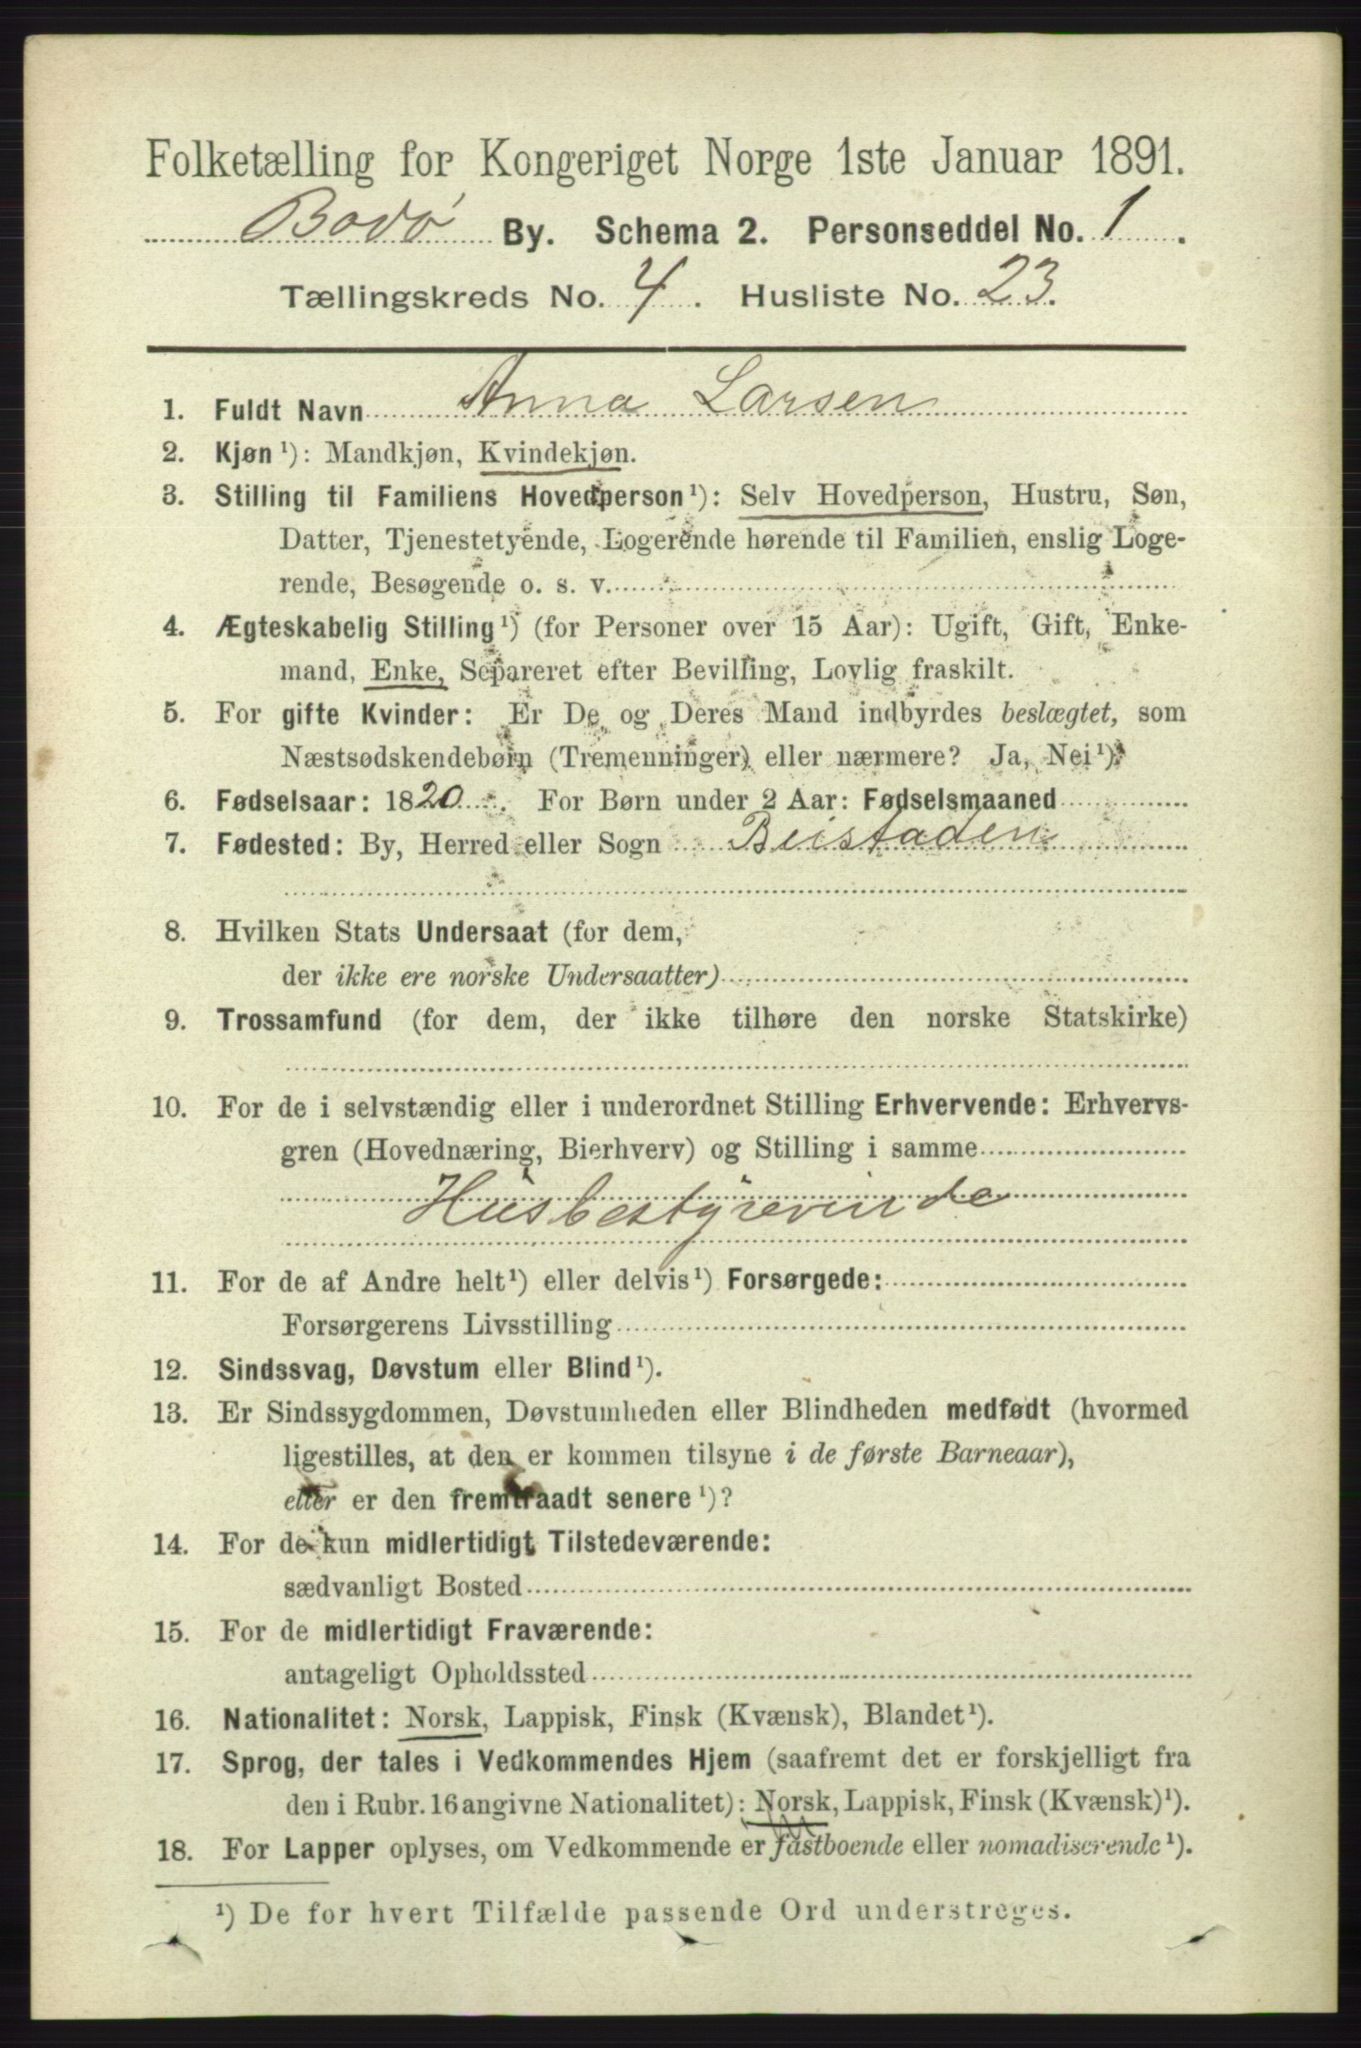 Folketælling for Kongeriget Norge 1ste Januar 1891.
Bodø By. Schema 2. Personseddel No. 1.
Tællingskreds No. 4. Husliste No. 23.
1. Fuldt Navn Anna Larsen
2. Kjøn¹): Mandkjøn, Kvindekjøn.
3. Stilling til Familiens Hovedperson¹): Selv Hovedperson, Hustru, Søn,
Datter, Tjenestetyende, Logerende hørende til Familien, enslig Loge-
rende, Besøgende o. s. v.
4. Ægteskabelig Stilling¹) (for Personer over 15 Aar): Ugift, Gift, Enke-
mand, Enke, Separeret efter Bevilling, Lovlig fraskilt.
5. For gifte Kvinder: Er De og Deres Mand indbyrdes beslægtet, som
Næstsødskendebørn (Tremenninger) eller nærmere? Ja, Nei¹).
6. Fødselsaar: 1820. For Børn under 2 Aar: Fødselsmaaned
7. Fødested: By, Herred eller Sogn Beistaden
8. Hvilken Stats Undersaat (for dem,
der ikke ere norske Undersaatter)
9. Trossamfund (for dem, der ikke tilhøre den norske Statskirke)
10. For de i selvstændig eller i underordnet Stilling Erhvervende: Erhvervs-
gren (Hovednæring, Bierhverv) og Stilling i samme
Husbestyrevinde
11. For de af Andre helt¹) eller delvis¹) Forsørgede:
Forsørgerens Livsstilling
12. Sindssvag, Døvstum eller Blind¹).
13. Er Sindssygdommen, Døvstumheden eller Blindheden medfødt (hvormed
ligestilles, at den er kommen tilsyne i de første Barneaar),
eller er den fremtraadt senere¹)?
14. For de kun midlertidigt Tilstedeværende:
sædvanligt Bosted
15. For de midlertidigt Fraværende:
antageligt Opholdssted
16. Nationalitet: Norsk, Lappisk, Finsk (Kvænsk), Blandet¹).
17. Sprog, der tales i Vedkommendes Hjem (saafremt det er forskjelligt fra
den i Rubr. 16 angivne Nationalitet): Norsk, Lappisk, Finsk (Kvænsk)¹).
18. For Lapper oplyses, om Vedkommende er fastboende eller nomadiserende¹).
¹) De for hvert Tilfælde passende Ord understreges.